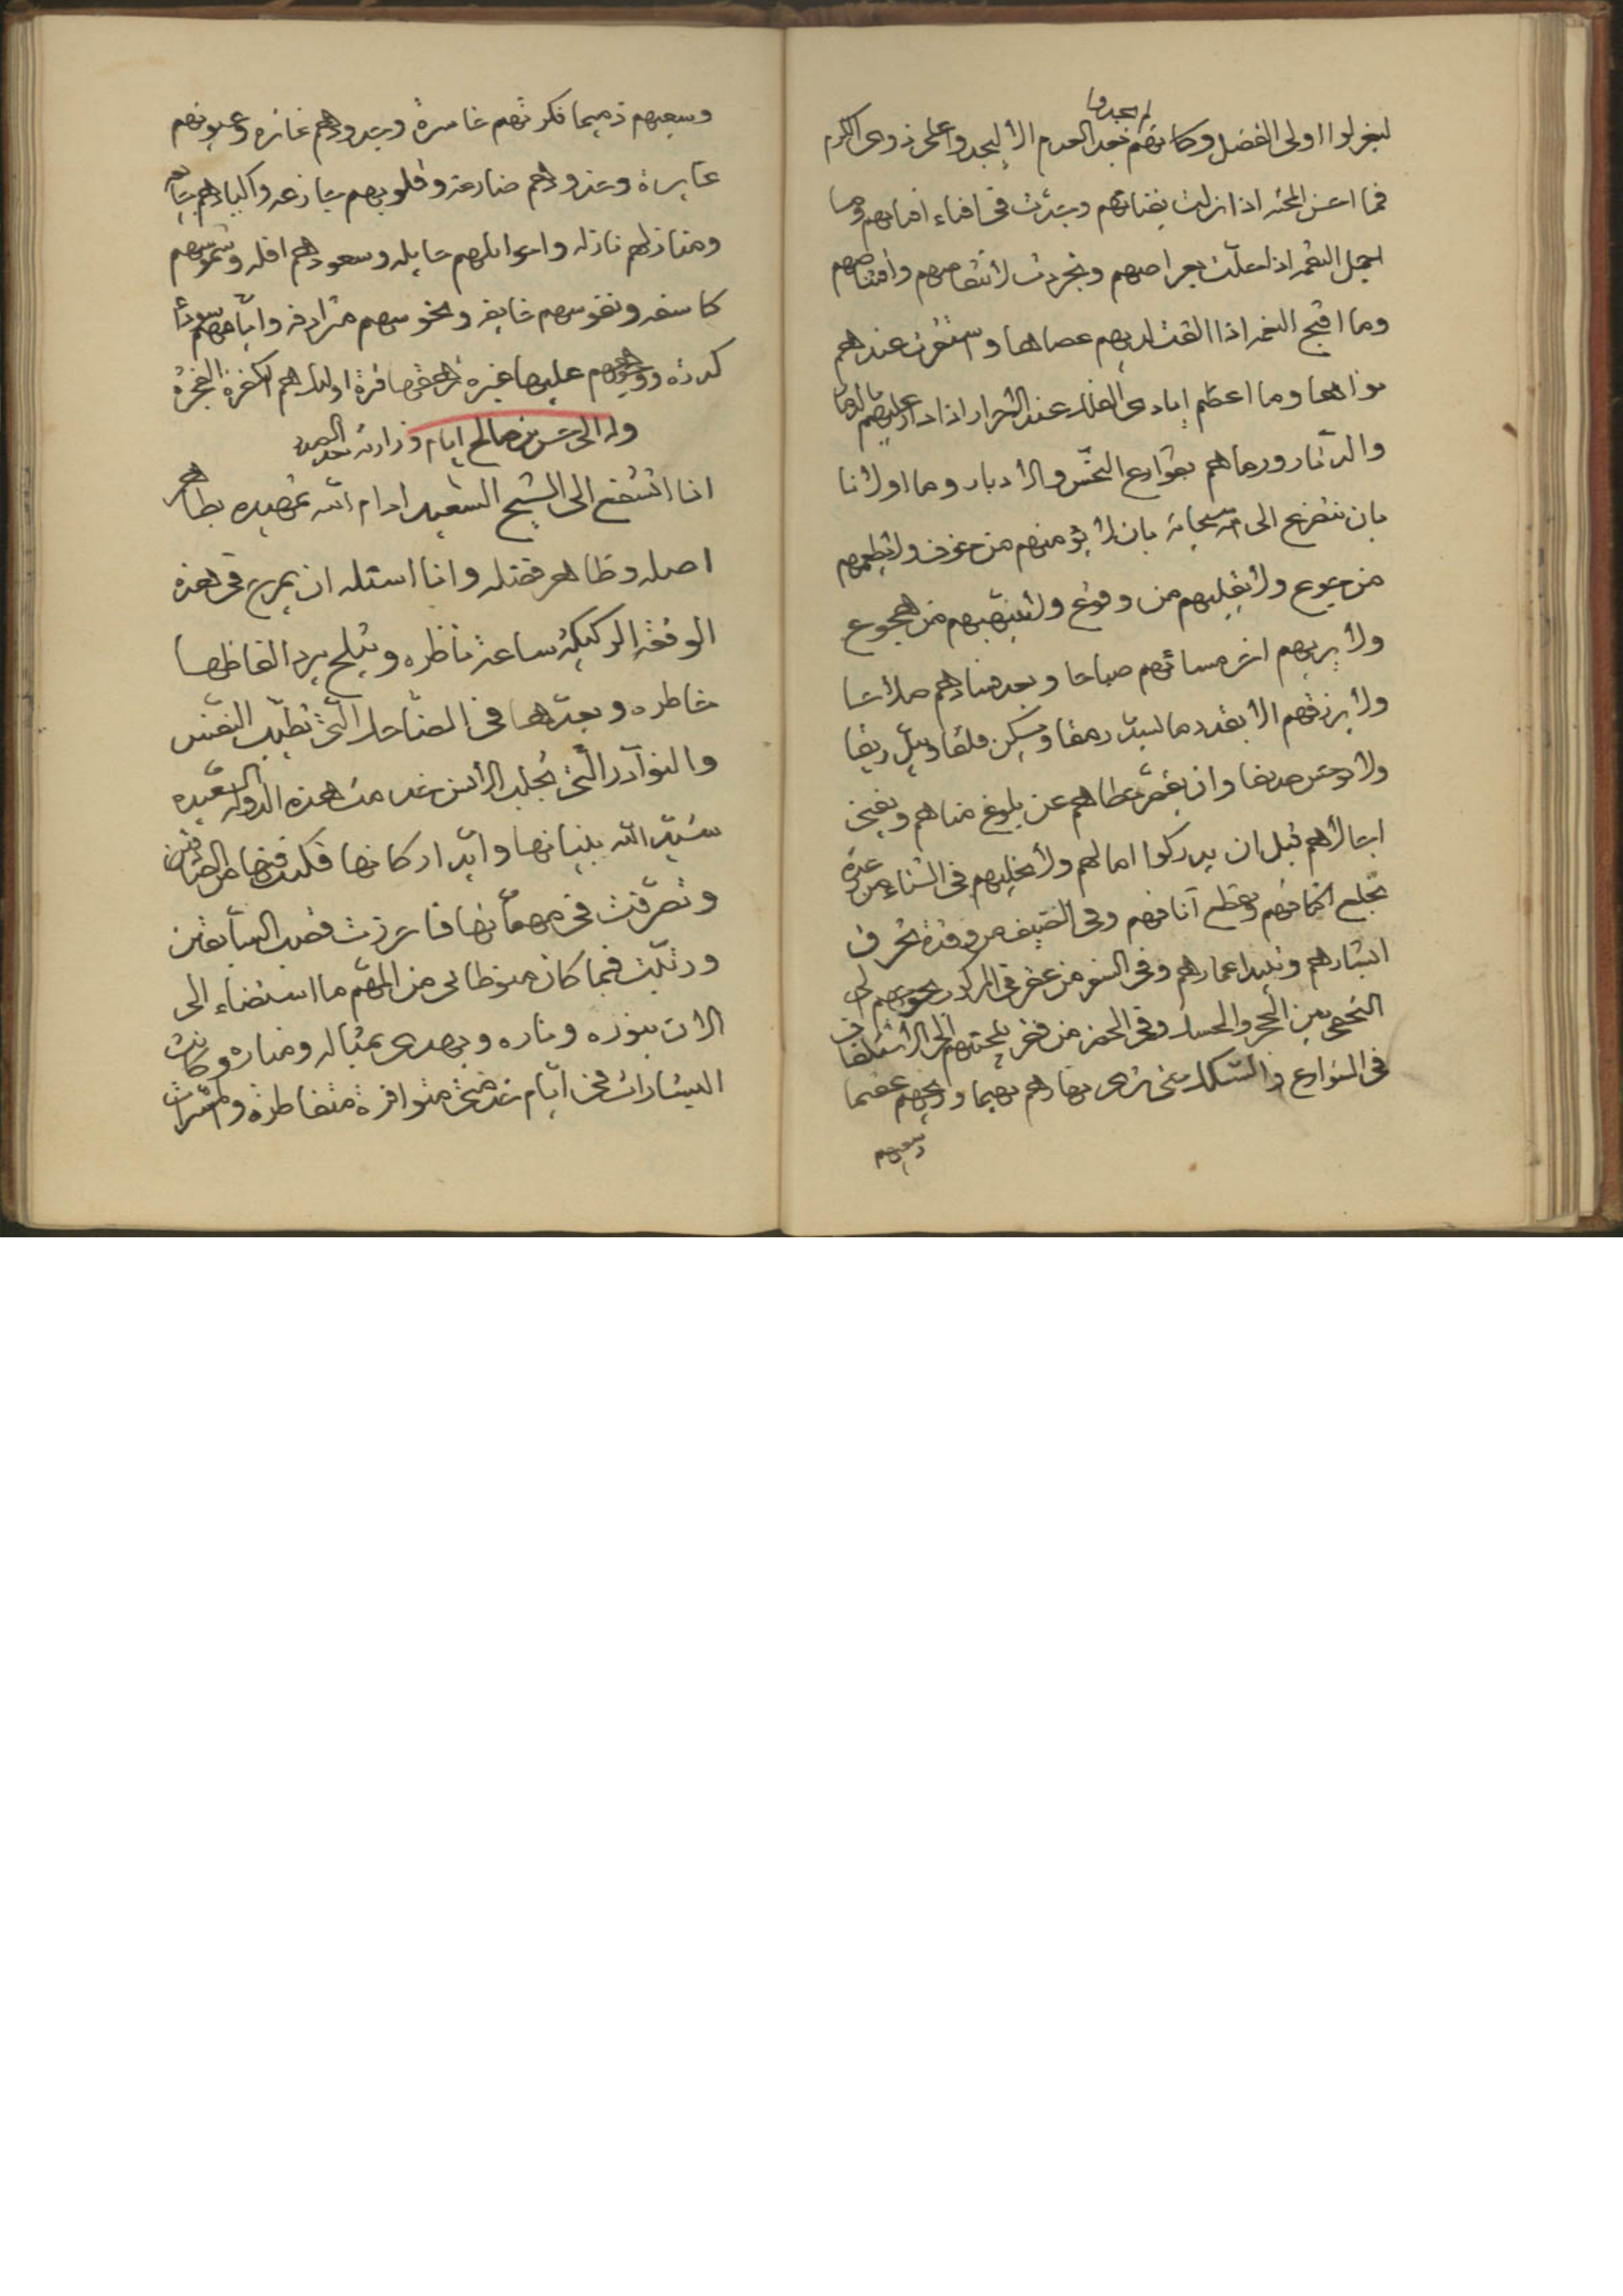 لم يجدوا
ليغزلوا اولى الفضل وكانهم بعد العدم الا ليجدوا على ذوى الكرم
فما احسن المحنه اذا نزلت بفنائهم وجرت فى افناء افنائهم وما
اجمل النقمه اذا حلت بعراصهم وتجردت لانتقاصهم واقتناصهم
وما اقبح النعمه اذا القت لديهم عصاها واستقرت عندهم
نواها وما اعظم ايادى الفلك عند الاحرار اذا دار عليهم بالدمار
والدثار ورماهم بقوارع النحس والادبار وما اولانا
بان نتضرع الى الله سبحانه بان لا يؤمنهم من خوف ولا يطعمهم
من جوع ولا يخليهم من وقوع ولا ينبههم من هجوع
ولا يريهم اثر مسائهم صباحا وبعد فسادهم صلاحا
ولا يرزقهم الا بقدر ما يسد رمقا ويسكن قلقا ويبل ريقا
ولا يوحش صديقا وان يقصر خطاهم عن بلوغ مناهم ويفنى
اجالهم قبل ان يدركوا امالهم ولا يخليهم فى الشتاء من
تجلع اكتافهم وتقطع آنافهم وفى الصيف من وقدة تحرق
ابشارهم وتبيد اعمارهم وفى السفر من عثر فى المراكب
بين الحجر والحسك وفى الحضر من فقر يلجئهم الى
فى الشوارع والسكك حتى نرى نهارهم بهيما وريحهم عقيما
وسعيهم
وسعيهم ذميما فكرتهم خاسرة وجدودهم عاثره وعيونهم
عابرة وخدودهم ضارعه وقلوبهم جازعه واكبادهم
ومنازلهم نازله واحوالهم حايله وسعودهم افله وشموسهم
كاسفه ونفوسهم خايفه ونحوسهم مترادفه وايامهم
كدره ووجوههم عليها غبره ترهقها قترة اولئك هم الكفرة الفجرة
وله الى حسن بن صالح ايام وزارته
انا اتشفع الى الشيخ السعيد ادام الله تمهيده بطاهر
اصله وظاهر فضله وانا اسئله ان يمرح فى هذه
الوقفه الركيكة ساعة ناظره ويثلج ببرد الفاظها
خاطره ويعدها فى المضاحك التى تطيب النفس
والنوادر التى تجلب الانس خدمت هذه الدوله السعيده
شيد الله بنيانها وايد اركانها فكنت فيها من
وتصرفت فى مهماتها فاحرزت قصب السابقين
ورتبت فيما كان منوطا بى من المهم ما استضاء الى
الان بنوره وناره ويهدى بمثاله ومناره وكانت
البشارات فى ايام خدمتى متوافرة متقاطرة والمسرات